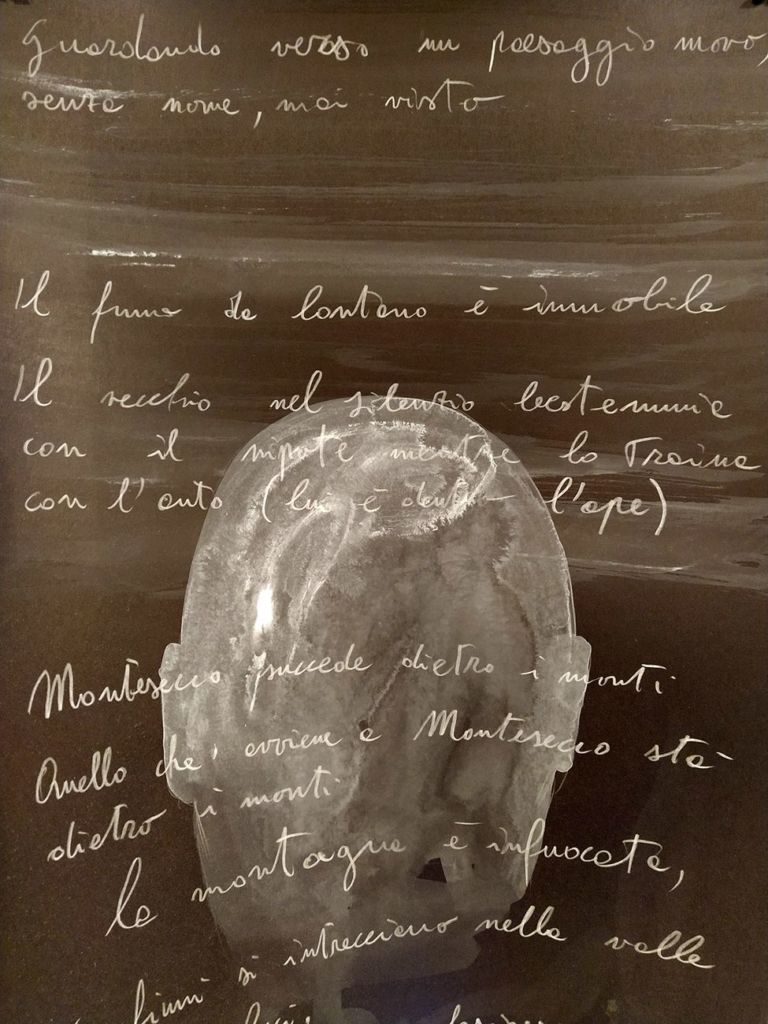 Guardando verso un paesaggio nuovo,
senza nome, mai visto
Il fumo da lontano è immobile
Il vecchio nel silenzio bestemmia
con il nipote mentre lo traina
con l'auto (lui è dentro l'ape)
Montesecco succede dietro i monti
Quello che avviene a Montesecco sta
dietro i monti
la montagna è infuocata,
fiumi si intrecciano nella valle